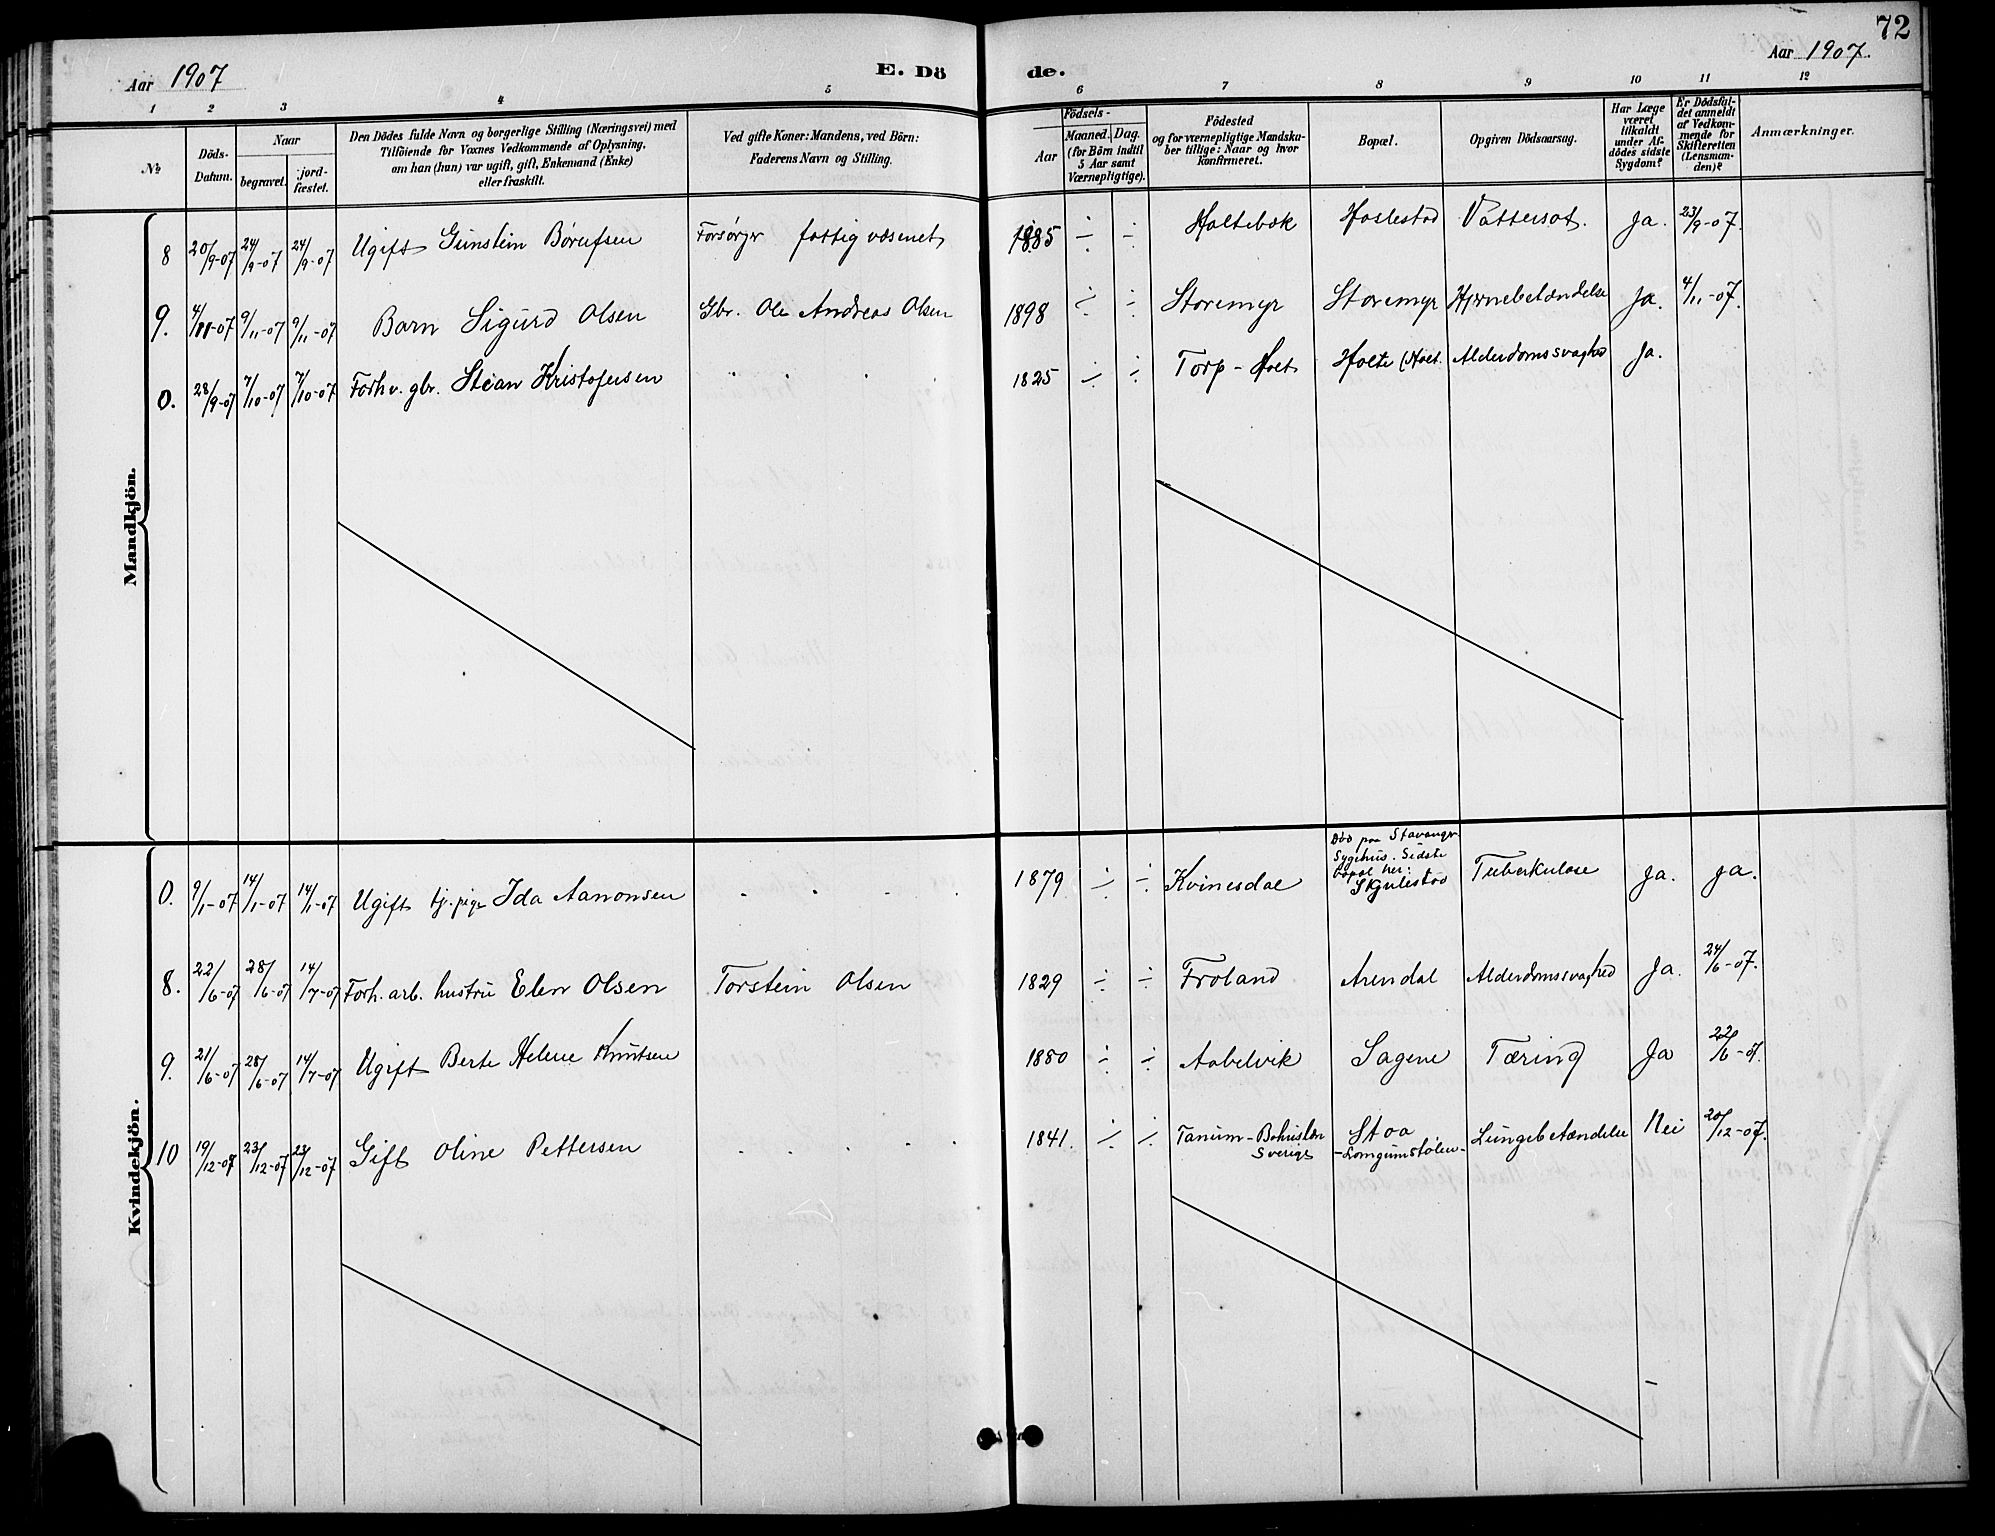 72
Aar 1907
E. Dö
de.
Aar 1907.
1 2 3 4 5 6 7 8 9 10 11 12
№
Döds-
Datum.
Naar
begravet.
jord-
fæstet.
Den Dödes fulde Navn og borgerlige Stilling (Næringsvei) med
Tilföiende for Voxnes Vedkommende af Oplysning,
om han (hun) var ugift, gift, Enkemand (Enke)
eller fraskilt.
Ved gifte Koner: Mandens, ved Börn:
Faderens Navn og Stilling.
Födsels-
Aar
Maaned. Dag.
(for Börn indtil
5 Aar samt
Værnepligtige).
Födested
og for værnepligtige Mandska-
ber tillige: Naar og hvor
konfirmeret.
Bopæl.
Opgiven Dödsaarsag.
Har Læge
været
tilkaldt
under Af-
dödes sidste
Sygdom?
Er Dödsfal-
det anmeldt
af Vedkom-
mende for
Skifteretten
(Lensman-
den)?
Anmærkninger.
Mandkjön.
8 20/9-07 24/9-07 24/9-07 Ugift Gunstein Børufsen Forsørger fattigvæsenet 1885 ÷ ÷ Holtebok Haslestad Vattersot. Ja. 23/9-07.
9. 4/11-07 9/11-07 9/11-07 Barn Sigurd Olsen Gbr. Ole Andreas Olsen 1898 ÷ ÷ Storemyr Storemyr Hjernebetændelse Ja. 4/11-07.
0. 28/9-07 7/10-07 7/10-07 Forhv. gbr. Stean Kristofersen 1825 ÷ ÷ Torp - Holt Holte (Holt. Alderdomssvaghed Ja.
Kvindekjön.
0. 9/1-07 14/1-07 14/1-07 Ugift tj. pige Ida Aanonsen 1879 ÷ ÷ Kvinesdal
Død paa Stavanger
Sygehus. Sidste
bopæl her:
Skjulestad
Tuberkulose Ja. Ja.
8. 22/6-07 28/6-07 14/7-07 Forh. arb. hustru Elen Olsen Torstein Olsen 1829 ÷ ÷ Froland Arendal Alderdomssvaghed Ja. 24/6-07.
9. 21/6-07 28/6-07 14/7-07 Ugift Berte Helene Knutsen 1880 ÷ ÷ Aabelvik Sagene Tæring Ja 22/6-07.
10 19/12-07 23/12-07 23/12-07 Gift Oline Pettersen 1841. ÷ ÷ Tanum - Bohuslen
Sverige
Stoa
-Longumstølen-
Lungebetændelse Nei 20/12-07.